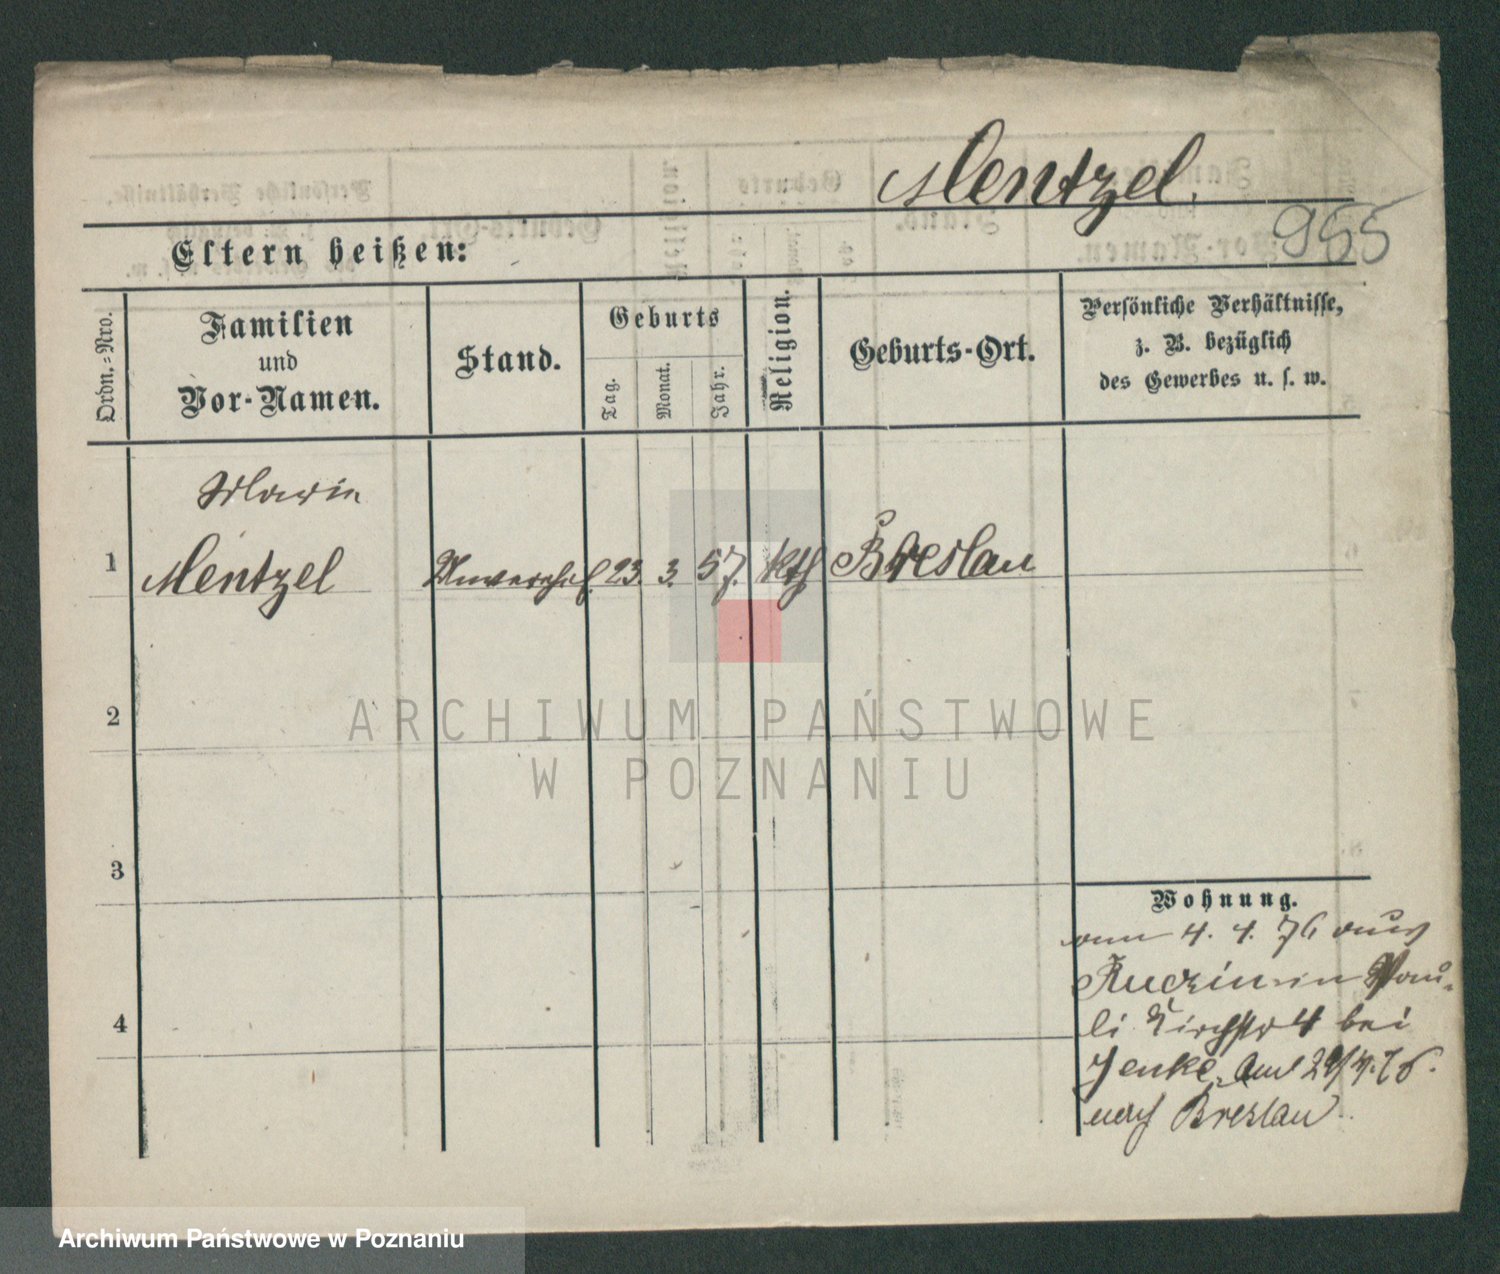 Mentzel.
955
Eltern heißen:
Ordn.-Nro.
Familien
und
Vor-Namen.
Stand.
Geburts
Tag.
Monat.
Jahr.
Religion.
Geburts-Ort.
Persönliche Verhältnisse,
z. B. bezüglich
des Gewerbes u. s. w.
Marie
1 Mentzel Unvereh. 23. 3. 57. kth Breslau
2
3
4
Wohnung.
4. 4. 76 aus
in Pau-
li Kirchstr 4 bei
Jenke. Am 29/4. 76.
nach Breslau.
ARCHIWUM PAŃSTWOWE
W POZNANIU
Archiwum Państwowe w Poznaniu